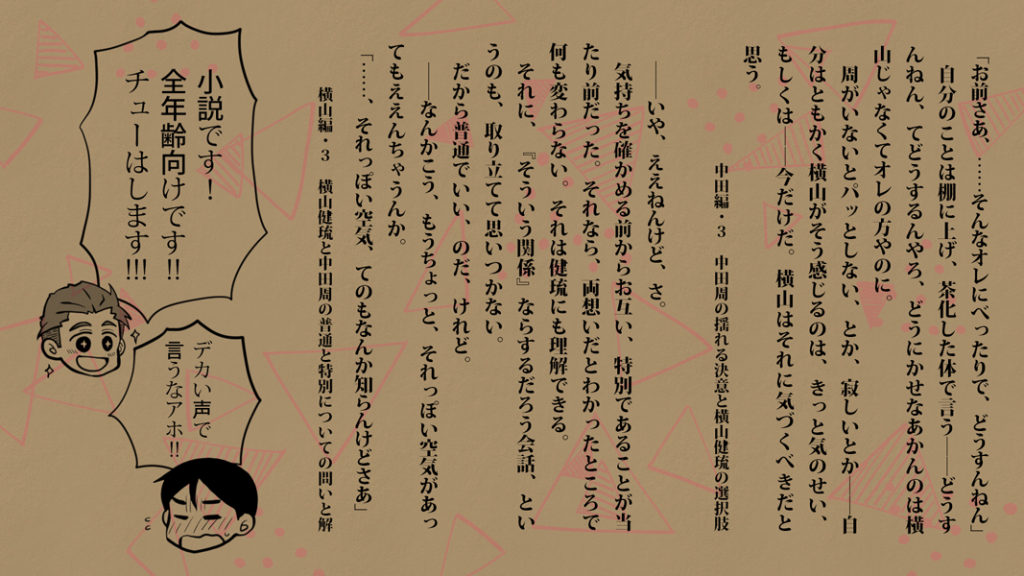 「お前さあ、……そんなオレにべったりで、どうすんねん」
　自分のことは棚に上げ、茶化した体で言う――どうす
んねん、てどうするんやろ、どうにかせなあかんのは横
山じゃなくてオレの方やのに。
　周がいないとパッとしない、とか、寂しいとか――自
分はともかく横山がそう感じるのは、きっと気のせい、
もしくは――今だけだ。横山はそれに気づくべきだと
思う。
中田編・3　中田周の揺れる決意と横山健琉の選択肢
――いや、ええねんけど、さ。
　気持ちを確かめる前からお互い、特別であることが当
たり前だった。それなら、両想いだとわかったところで
何も変わらない。それは健琉にも理解できる。
　それに、『そういう関係』ならするだろう会話、とい
うのも、取り立てて思いつかない。
　だから普通でいい、のだ、けれど。
　――なんかこう、もうちょっと、それっぽい空気があっ
てもええんちゃうんか。
「……、それっぽい空気、てのもなんか知らんけどさあ」
横山編・3　横山健琉と中田周の普通と特別についての問いと解
小説です！
全年齢向けです!!
チューはします!!!
デカい声で
言うなアホ!!